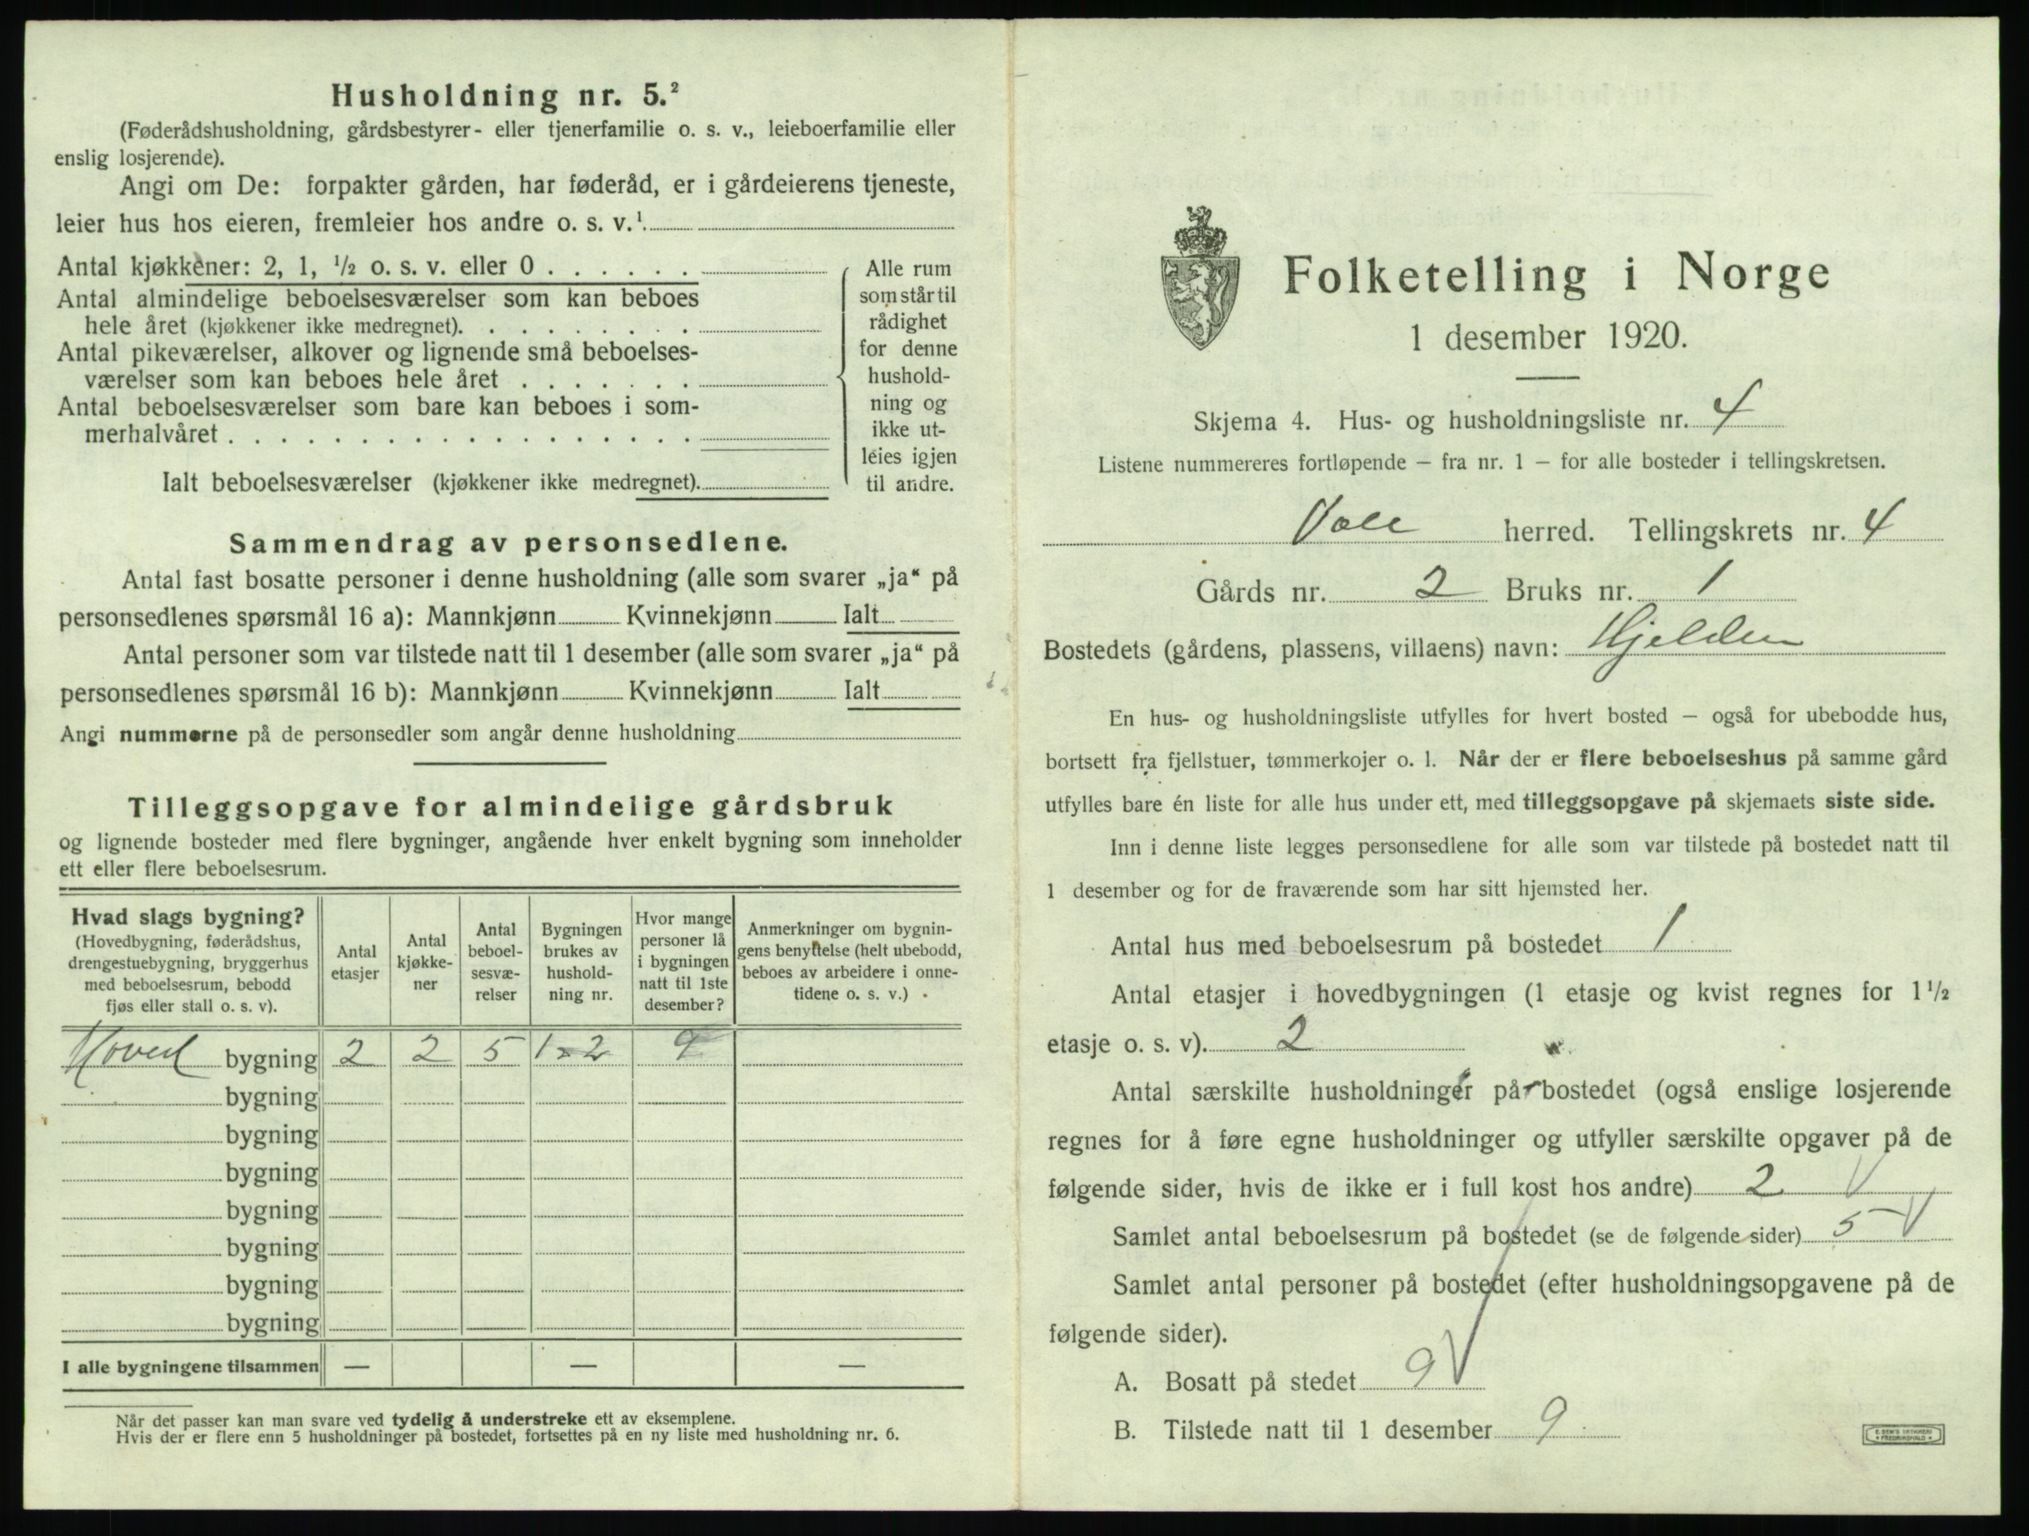 Husholdning nr. 5.²
(Føderådshusholdning, gårdsbestyrer- eller tjenerfamilie o. s. v., leieboerfamilie eller
enslig losjerende).
Angi om De: forpakter gården, har føderåd, er i gårdeierens tjeneste,
leier hus hos eieren, fremleier hos andre o. s. v.¹
Antal kjøkkener: 2, 1, ½ o. s. v. eller 0
Antal almindelige beboelsesværelser som kan beboes
hele året (kjøkkener ikke medregnet).
Antal pikeværelser, alkover og lignende små beboelses-
værelser som kan beboes hele året
Antal beboelsesværelser som bare kan beboes i som-
merhalvåret
Ialt beboelsesværelser (kjøkkener ikke medregnet).
Alle rum
som står til
rådighet
for denne
hushold-
ning og
ikke ut-
leies igjen
til andre.
Sammendrag av personsedlene.
Antal fast bosatte personer i denne husholdning (alle som svarer „ja“ på
personsedlenes spørsmål 16 a): Mannkjønn Kvinnekjønn Ialt
Antal personer som var tilstede natt til 1 desember (alle som svarer „ja“ på
personsedlenes spørsmål 16 b): Mannkjønn Kvinnekjønn Ialt
Angi nummerne på de personsedler som angår denne husholdning
Tilleggsopgave for almindelige gårdsbruk
og lignende bosteder med flere bygninger, angående hver enkelt bygning som inneholder
ett eller flere beboelsesrum.
Hvad slags bygning?
(Hovedbygning, føderådshus,
drengestuebygning, bryggerhus
med beboelsesrum, bebodd
fjøs eller stall o. s. v).
Antal
etasjer
Antal
kjøkke-
ner
Antal
beboel-
sesvæ-
relser
Bygningen
brukes av
hushold-
ning nr.
Hvor mange
personer lå
i bygningen
natt til 1ste
desember?
Anmerkninger om bygnin-
gens benyttelse (helt ubebodd,
beboes av arbeidere i onne-
tidene o. s. v.)
Hoved bygning 2 2 5 1-2 9
bygning
bygning
bygning
bygning
bygning
bygning
bygning
I alle bygningene tilsammen — — —
Når det passer kan man svare ved tydelig å understreke ett av eksemplene.
Hvis der er flere enn 5 husholdninger på bostedet, fortsettes på en ny liste med husholdning nr. 6.
Folketelling i Norge
1 desember 1920.
Skjema 4. Hus- og husholdningsliste nr. 4
Listene nummereres fortløpende – fra nr. 1 – for alle bosteder i tellingskretsen.
Voll herred. Tellingskrets nr. 4
Gårds nr. 2 Bruks nr. 1
Bostedets (gårdens, plassens, villaens) navn: Hjelden
En hus- og husholdningsliste utfylles for hvert bosted – også for ubebodde hus,
bortsett fra fjellstuer, tømmerkojer o. l. Når der er flere beboelseshus på samme gård
utfylles bare én liste for alle hus under ett, med tilleggsopgave på skjemaets siste side.
Inn i denne liste legges personsedlene for alle som var tilstede på bostedet natt til
1 desember og for de fraværende som har sitt hjemsted her.
Antal hus med beboelsesrum på bostedet 1
Antal etasjer i hovedbygningen (1 etasje og kvist regnes for 1½
etasje o. s. v). 2
Antal særskilte husholdninger på bostedet (også enslige losjerende
regnes for å føre egne husholdninger og utfyller særskilte opgaver på de
følgende sider, hvis de ikke er i full kost hos andre) 2
Samlet antal beboelsesrum på bostedet (se de følgende sider) 5
Samlet antal personer på bostedet (efter husholdningsopgavene på de
følgende sider).
A. Bosatt på stedet 9
B. Tilstede natt til 1 desember 9